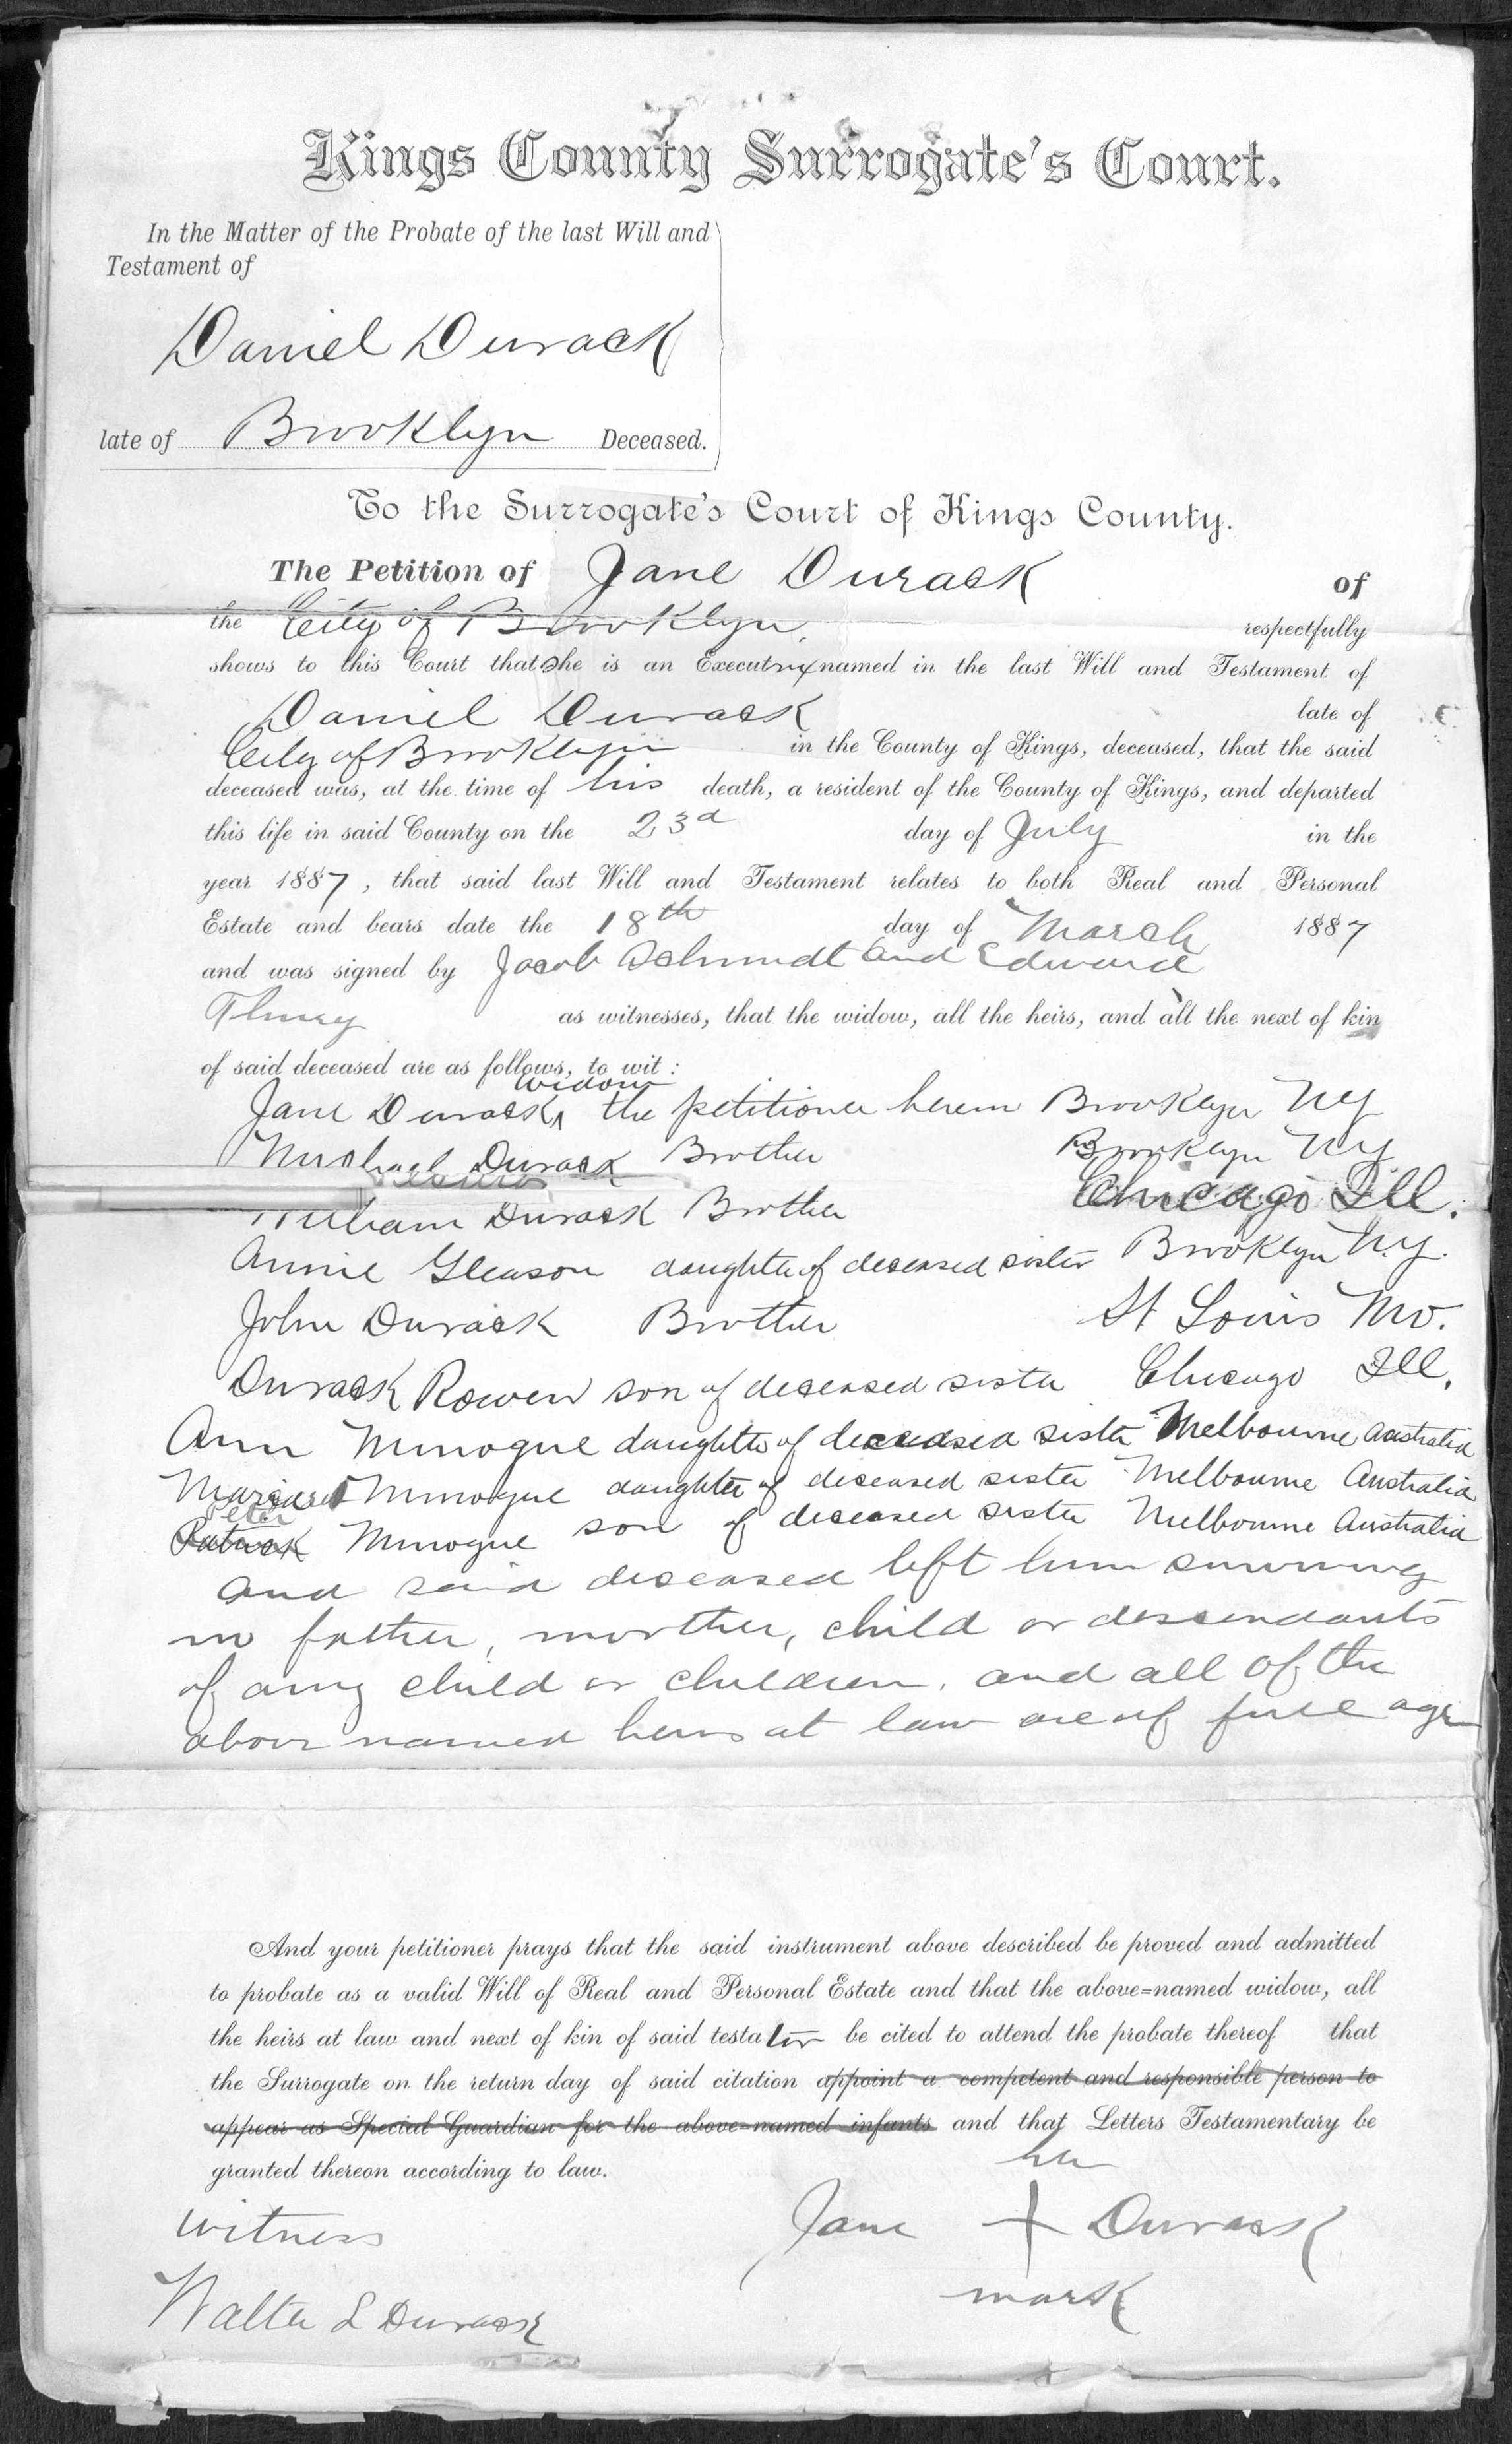 Kings County Surrogate's Court.
In the Matter of the Probate of the last Will and
Testament of
Daniel Durack
late of Brooklyn Deceased.
To the Surrogate's Court of Kings County.
The Petition of Jane Durack of
the City of Brooklyn, respectfully
shows to this Court that she is an Executrix named in the last Will and Testament of
Daniel Durack late of
City of Brooklyn in the County of Kings, deceased, that the said
deceased was, at the time of his death, a resident of the County of Kings, and departed
this life in said County on the 23d day of July in the
year 1887, that said last Will and Testament relates to both Real and Personal
Estate and bears date the 18th day of March 1887
and was signed by Jacob Schmidt and Edward
as witnesses, that the widow, all the heirs, and all the next of kin
of said deceased are as follows, to wit:
widow
Jane Durack, the petitioner herein Brooklyn NY
Michael Durack Brother Brooklyn NY
William Durack Brother Chicago Ill.
Annie Gleason daughter of deceased sister Brooklyn N.Y.
John Durack Brother St Louis Mo.
Durack Rowen son of deceased sister Chicago Ill.
Ann Minogue daughter of deceased sister Melbourne Australia
Margaret Minogue daughter of deceased sister Melbourne Australia
Peter
Patrick Minogue son of deceased sister Melbourne Australia
and said deceased left him surviving
no father, mother, child or descendants
of any child or children, and all of the
above named heirs at law are of full age
And your petitioner prays that the said instrument above described be proved and admitted
to probate as a valid Will of Real and Personal Estate and that the above=named widow, all
the heirs at law and next of kin of said testator be cited to attend the probate thereof that
the Surrogate on the return day of said citation appoint a competent and responsible person to
appear as Special Guardian for the above=named infants and that Letters Testamentary be
granted thereon according to law.
her
witness Jane + Durack
mark
Walter L Durack